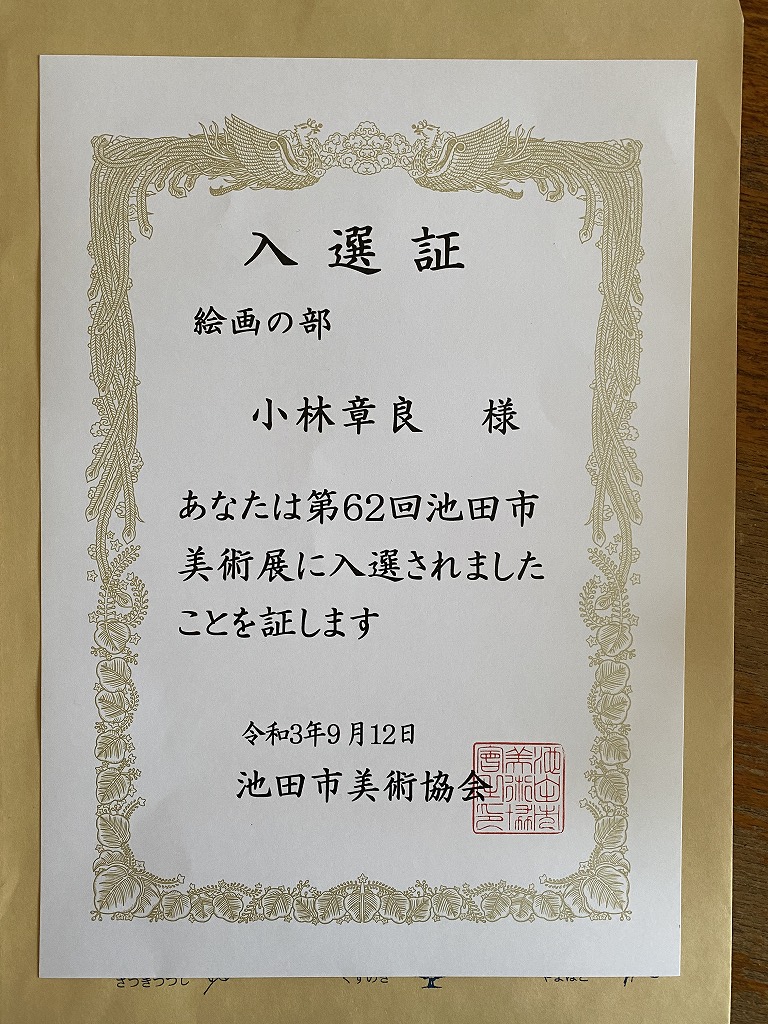 入選証
絵画の部
小林章良 様
あなたは第62回池田市
美術展に入選されました
ことを証します
令和3年9月12日
池田市美術協会
さつきつつじ くすのき やまばと